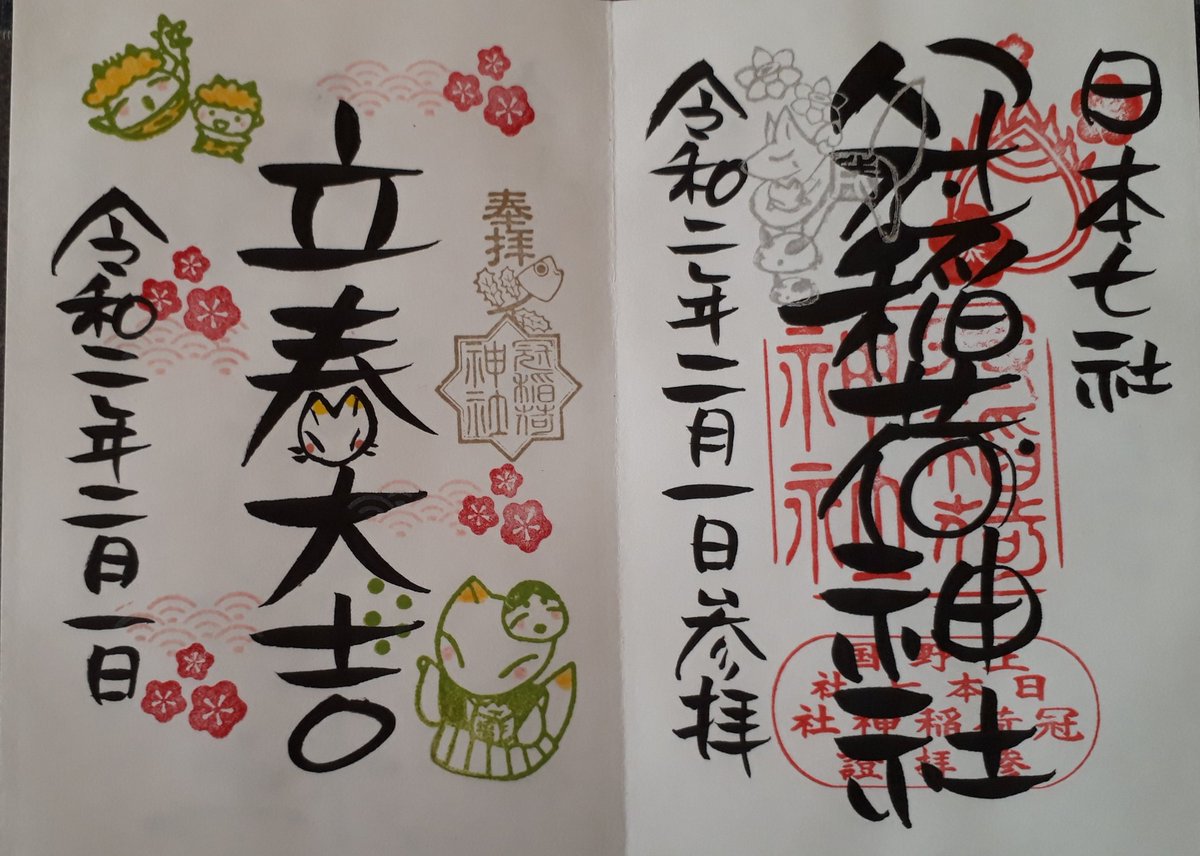 日本七社
冠稲荷神社
冠稲荷
神社
上野国
日本七社
冠稲荷神社
参拝證
令和二年二月一日参拝
奉拝
冠稲荷
神社
立春大吉
令和二年二月一日